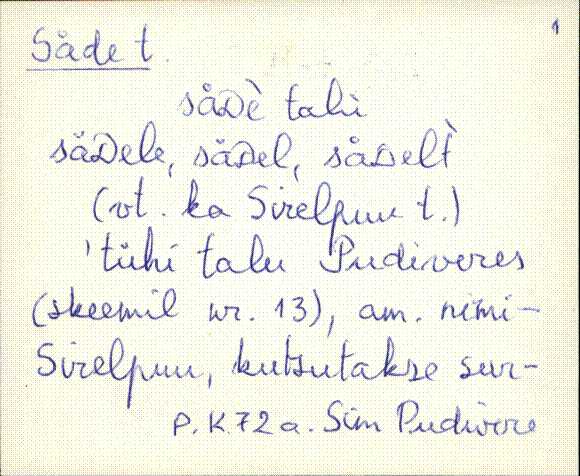 1
Såde t.
såDè talu
såDele, såDel, såDelt̀
(vt. ka Sirelpuu t.)
'tühi talu Pudiveres
(skeemil nr. 13), am. nimi -
Sirelpuu, kutsutakse sur-
P.K.72 a. Sim Pudivere